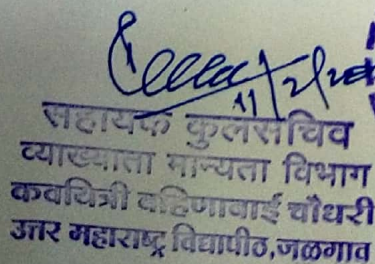 सहायक कुलसचिव
व्याख्याता मान्यता विभाग
कवयित्री बहिणाबाई चौधरी
उत्तर महाराष्ट्र विद्यापीठ,जळगाव